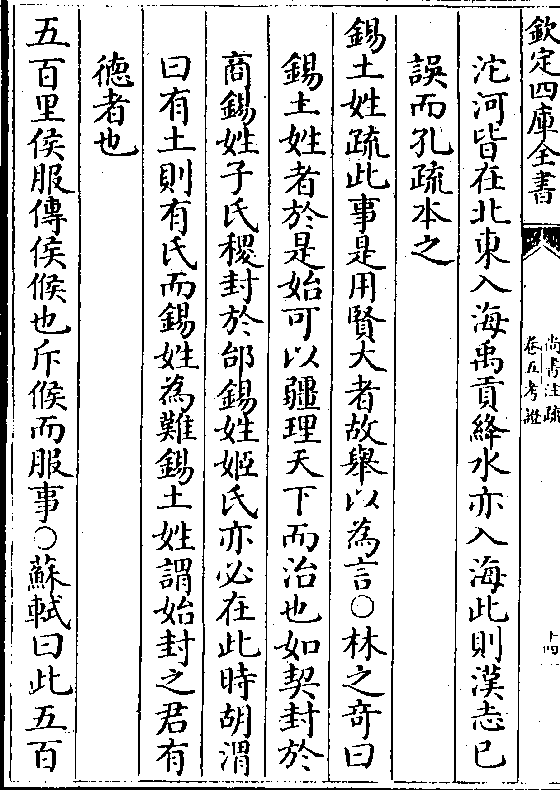 欽定四庫全書
尚書注疏
卷五考證
十四
沱河皆在北東入海禹貢絳水亦入海此則漢志已
誤而孔疏本之
錫土姓疏此事是用賢大者故舉以為言○林之奇曰
錫土姓者於是始可以疆理天下而治也如契封於
商錫姓子氏稷封於邰錫姓姬氏亦必在此時胡渭
曰有土則有氏而錫姓為難錫土姓謂始封之君有
德者也
五百里侯服傳侯候也斥候而服事○蘇軾曰此五百